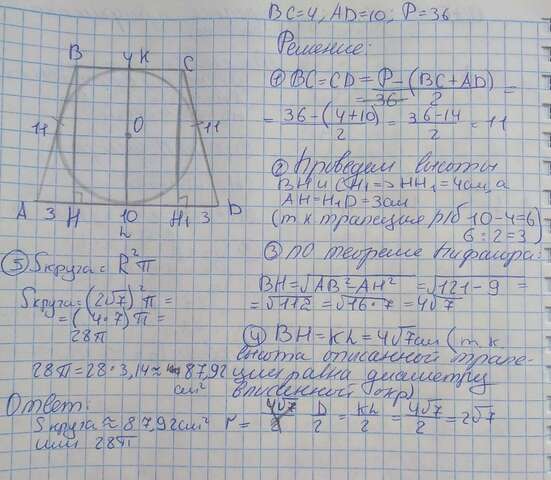 BC=4, AD=10, P=36
Решение:
B 4 K C
11 O 11
A 3 H 10 H₁ 3 D
L
① BC=CD= P-(BC+AD) / 2 =
= 36-(4+10) / 2 = 36-14 / 2 = 11
② Проведем высоты
BH и CH₁ => HH₁=4см, а
AH=H₁D=3см
(т к трапеция р/б 10-4=6)
6:2=3)
③ По теореме Пифагора:
BH=√AB²-AH² = √121-9 =
= √112 = √16·7 = 4√7
④ BH=KL=4√7см (т.к
высота описанной трапе-
ции равна диаметру
вписанной окр)
r = D/2 = KL/2 = 4√7/2 = 2√7
⑤ Sкруга = R²π
Sкруга=(2√7)²π =
=(4·7)π =
28π
28π=28·3,14≈ 87,92
см²
Ответ:
Sкруга ≈ 87,92см²
или 28π